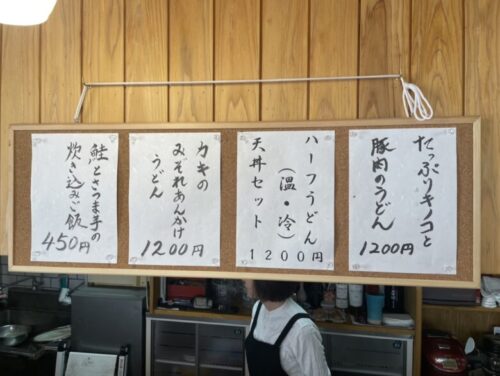 たっぷりキノコと
豚肉のうどん
1200円
ハーフうどん
(温・冷)
天丼セット
1200円
カキの
みぞれあんかけ
うどん
1200円
鮭とさつま芋の
炊き込みご飯
450円